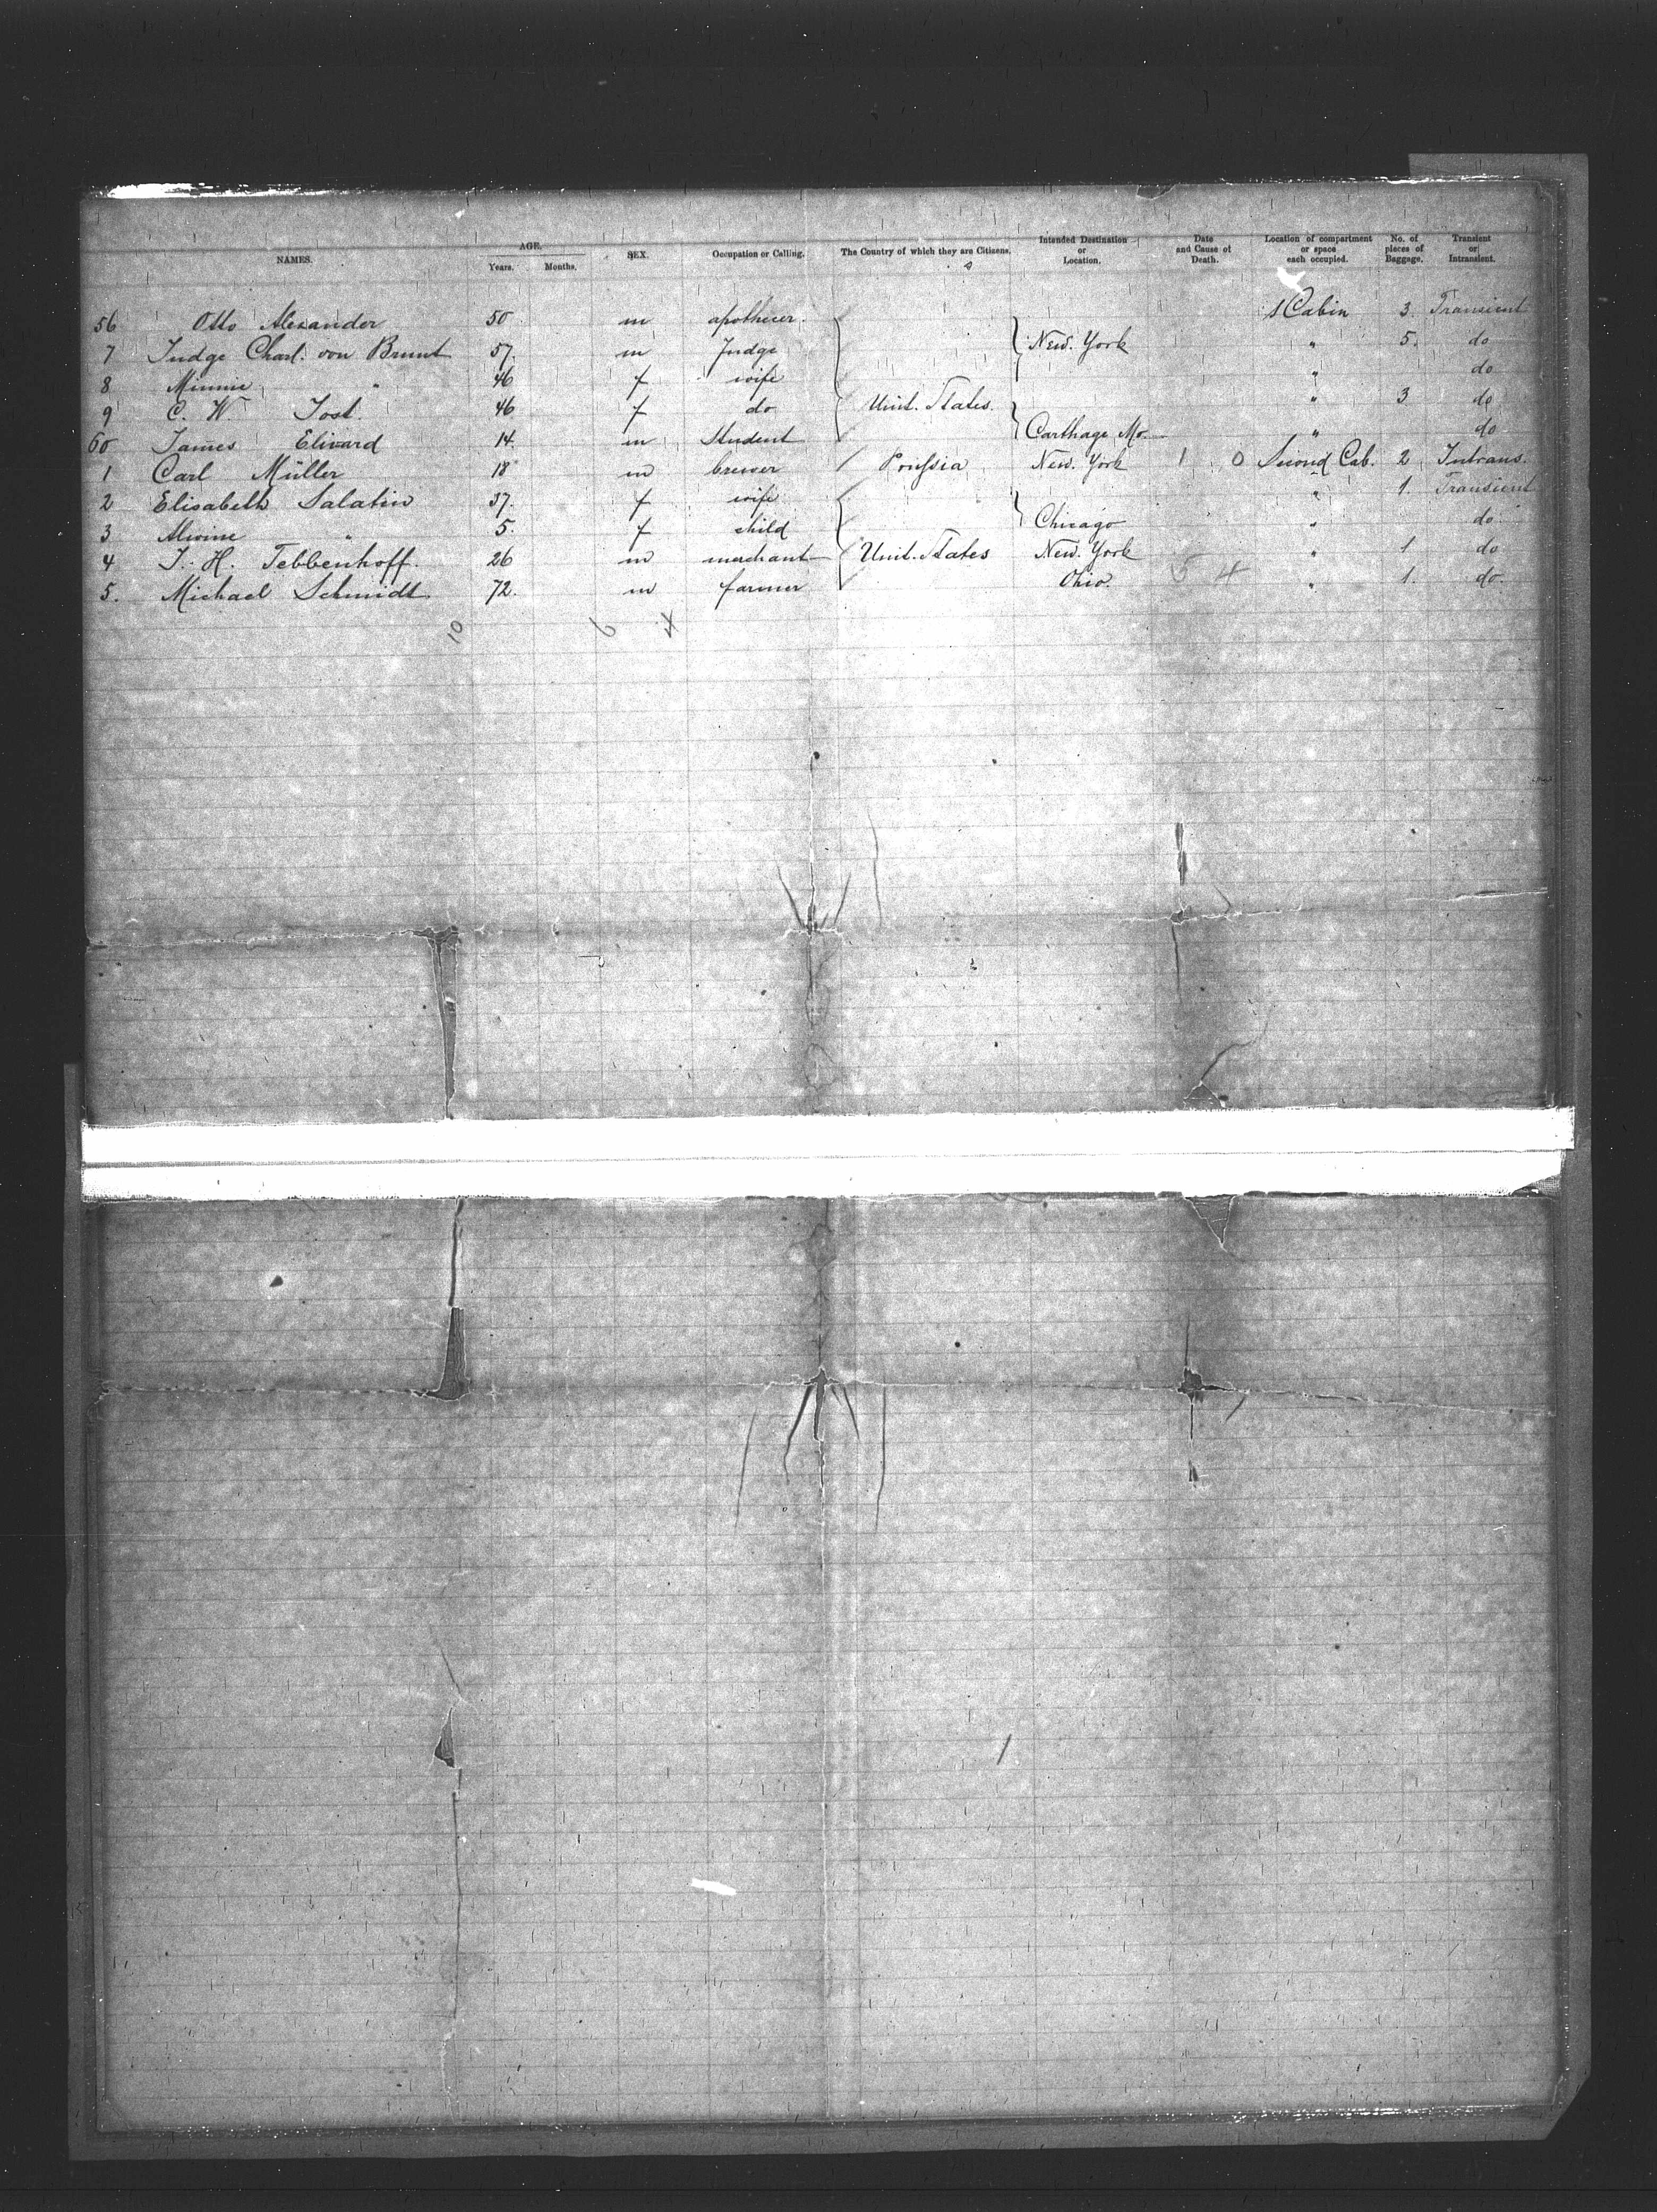 NAMES. AGE. Years. Months. SEX. Occupation or Calling. The Country of which they are Citizens. Intended Destination or Location. Date and Cause of Death. Location of compartment or space each occupied. No. of pieces of Baggage. Transient or Intransient.
56 Otto Alexander 50 m apothecer. 1 Cabin 3. Transient
7 Judge Charl. von Brunt 57. m Judge New. York " 5. do
8 Minnie " 46 f wife " do
9 C. W Tost. 46 f do Unit. States. " 3 do
60 James Elivard 14. m Student Carthage Mo. " do
1 Carl Müller 18 m brewer Prussia New. York 1 0 Second Cab. 2 Intrans.
2 Elisabeth Salatin 37. f wife " 1. Transient
3 Alwine " 5. f child Chicago " do
4 J. H. Tebbenhoff. 26 m merchant Unit. States New. York " 1 do
5. Michael Schmidt. 72. m farmer Ohio. 5 4 " 1. do.
10 6 4